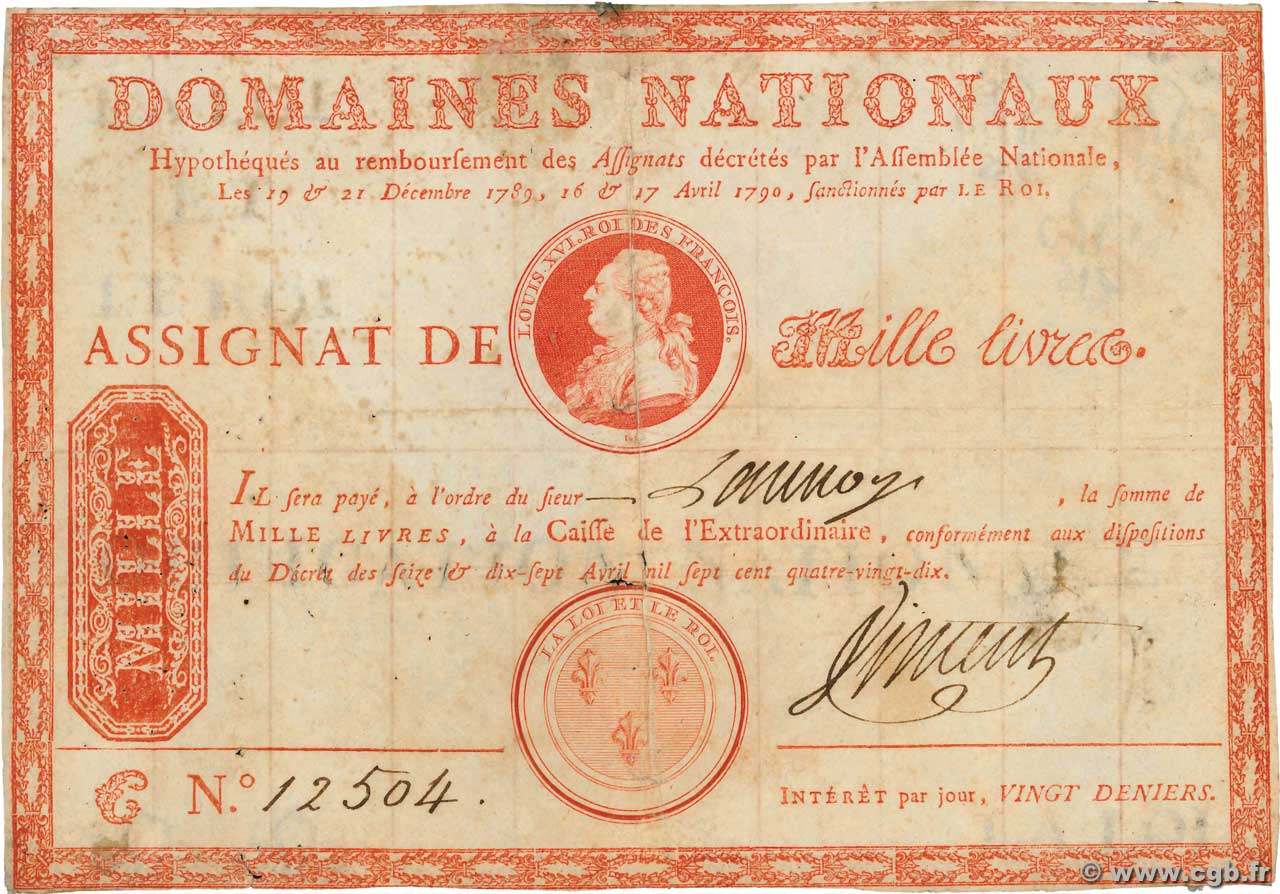 DOMAINES NATIONAUX
Hypothéqués au rembourſement des Aſſignats décrétés par l'Aſſemblée Nationale,
Les 19 & 21 Décembre 1789, 16 & 17 Avril 1790, ſanctionnés par LE ROI.
LOUIS XVI. ROI DES FRANÇOIS.
ASSIGNAT DE Mille livres.
MILLE
IL ſera payé, à l'ordre du ſieur — Launoy, la ſomme de
MILLE LIVRES, à la Caiſſe de l'Extraordinaire, conformément aux diſpoſitions
du Décret des ſeize & dix-ſept Avril mil ſept cent quatre-vingt-dix.
LA LOI ET LE ROI.
Vincent
C N.° 12504.
INTÉRÊT par jour, VINGT DENIERS.
© www.cgb.fr